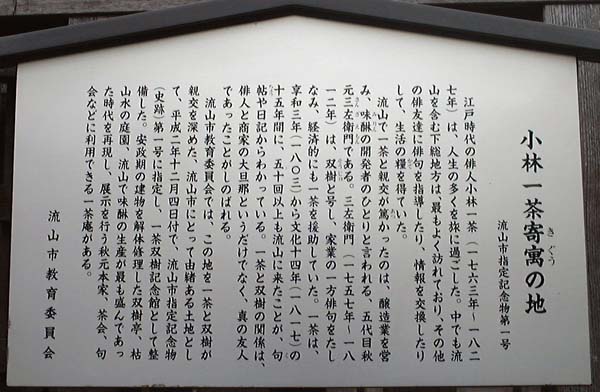 小林一茶寄寓の地
きぐう
流山市指定記念物第一号
江戸時代の俳人小林一茶(一七六三年~一八二
七年)は、人生の多くを旅に過ごした。中でも流
山を含む下総地方は、最もよく訪れており、その他
の俳友達に俳句を指導したり、情報を交換したり
して、生活の糧を得ていた。
流山で一茶と親交が篤かったのは、醸造業を営
み、味醂の開発者のひとりと言われる、五代目秋
元三左衛門である。三左衛門(一七五七年~一八
一二年)は、双樹と号し、家業の一方俳句をたし
なみ、経済的にも一茶を援助していた。一茶は、
享和三年(一八〇三)から文化十四年(一八一七)の
十五年間に、五十回以上も流山に来たことが、句
帖や日記からわかっている。一茶と双樹の関係は、
俳人と商家の大旦那というだけでなく、真の友人
であったことがしのばれる。
流山市教育委員会では、この地を一茶と双樹が
親交を深めた、流山市にとって由緒ある土地とし
て、平成二年十二月四日付で、流山市指定記念物
(史跡)第一号に指定し、一茶双樹記念館として整
備した。安政期の建物を解体修理した双樹亭、枯
山水の庭園、流山で味醂の生産が最も盛んであっ
た時代を再現し、展示を行う秋元本家、茶会、句
会などに利用できる一茶庵がある。
流山市教育委員会